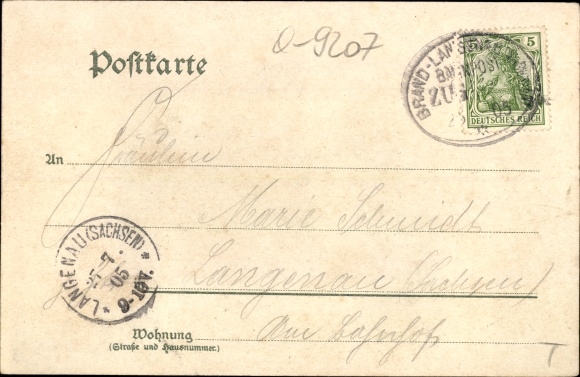 O-9207
Postkarte
5
DEUTSCHES REICH
BRAND-LAN
BAHNPOST
ZUG
05
An Fräulein
Marie Schmidt
Langenau (Sachsen)
Am Bahnhof
LANGENAU (SACHSEN)
7.
05
9-10V.
Wohnung
(Straße und Hausnummer.)